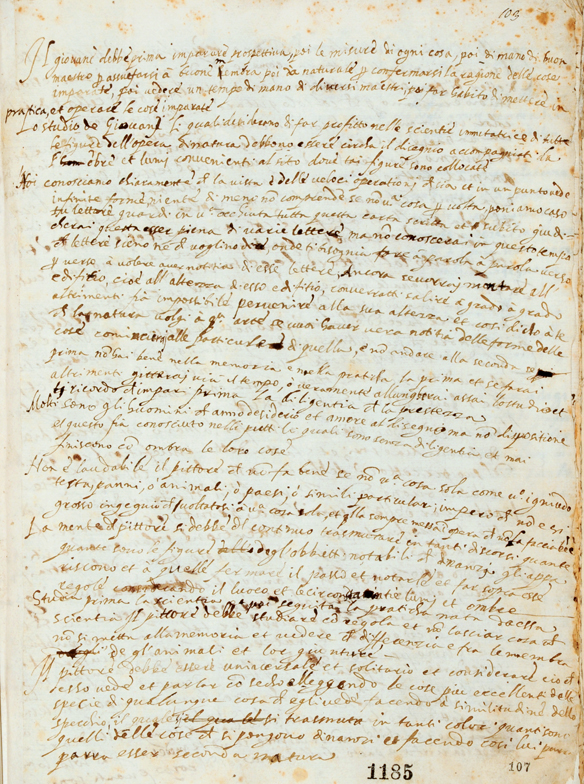 103
Il giovane debbe prima imparare prospettiva, poi le misure di ogni cosa, poi di mano di buon
maestro p assuefarsi à buone membra poi da naturale p confermarsi la ragione delle cose
imparate, poi vedere un tempo di mano di diversi maestri, p far habito di mettere in
pratica, et operare le cose imparate
Lo studio de Giovani li quali desiderano di far profitto nelle scientie immitatrice di tutte
le figure dell'opera di natura debbono essere circa il disegno accompagnato la
ombre et lumi convenienti al sito dove tai figure sono collocate
Noi conosciamo chiaramente la vista è delle veloci operationi di sia et in un punto vede
infinite forme niente di meno non comprende se no una cosa p volta poniamo caso
tu lettore guardi in una occhiata tutta questa carta scritta et subito giudi-
cherai essere piena di varie lettere ma no conoscerai in questo tempo
lettere sieno ne voglino dire onde ti bisognia fare a parola à parola verso
p verso à volere aver notitia di esse lettere, Ancora se vorrai montare all
edifitio, cioè all altezza di esso edifitio, converratti salire à grado à grado
altrimenti fia impossibile pervenire alla sua altezza et cosi dico à te
la natura volgi à arte se vuoi haver vera notitia delle forme delle
cose comincierai alle particule di quelle, e no andare alla seconda se
prima no hai bene nella memoria e nella pratica la prima et se farai
altrimenti gitterai via il tempo, ò veramente allungherai assai lo studio et
ti ricordo impari prima la diligentia la prestezza
Molti sono gli huomini anno desiderio et amore al disegno ma no dispositione
et questo fia conosciuto nelle putti le quali sono senza diligentia et mai
finiscono cò ombra le loro cose
Non è laudabile il pittore no fa bene se no una cosa sola come un ignuudo
testa, panni, ò animali, ò paesi, ò simili particulari, imperò no è si
grosso ingegnio voltatosi à una cosa sola, et quella sempre messa in opera no la faccia bene
La mente del pittore si debbe del continuo trasmutare in tanti discorsi quante
quante sono le figure degl'obbietti notabili dinanzi gli appa-
riscono et à quelle fermare il passo et notarle et far sopra esse
regole considerando il luoco et le circonstantie lumi et ombre
Studia prima la scientia et poi seguita la pratica nata da essa
scientia, Il pittore debbe studiare cò regola et no lasciar cosa
no si metta alla memoria et vedere differentia è fra le membra
de gli animali et lor giunture
Il pittore debbe essere universale et solitario et considerare ciò
esso vede et parlar cò seco eleggendo le cose piu excellenti delle
specie di qualunque cosa egli vede facendo à similitudine dello
specchio il quale si trasmuta in tanti colori quanti sono
quelli delle cose si pongono dinanzi et facendo cosi lui
parra esser seconda natura
1185
107